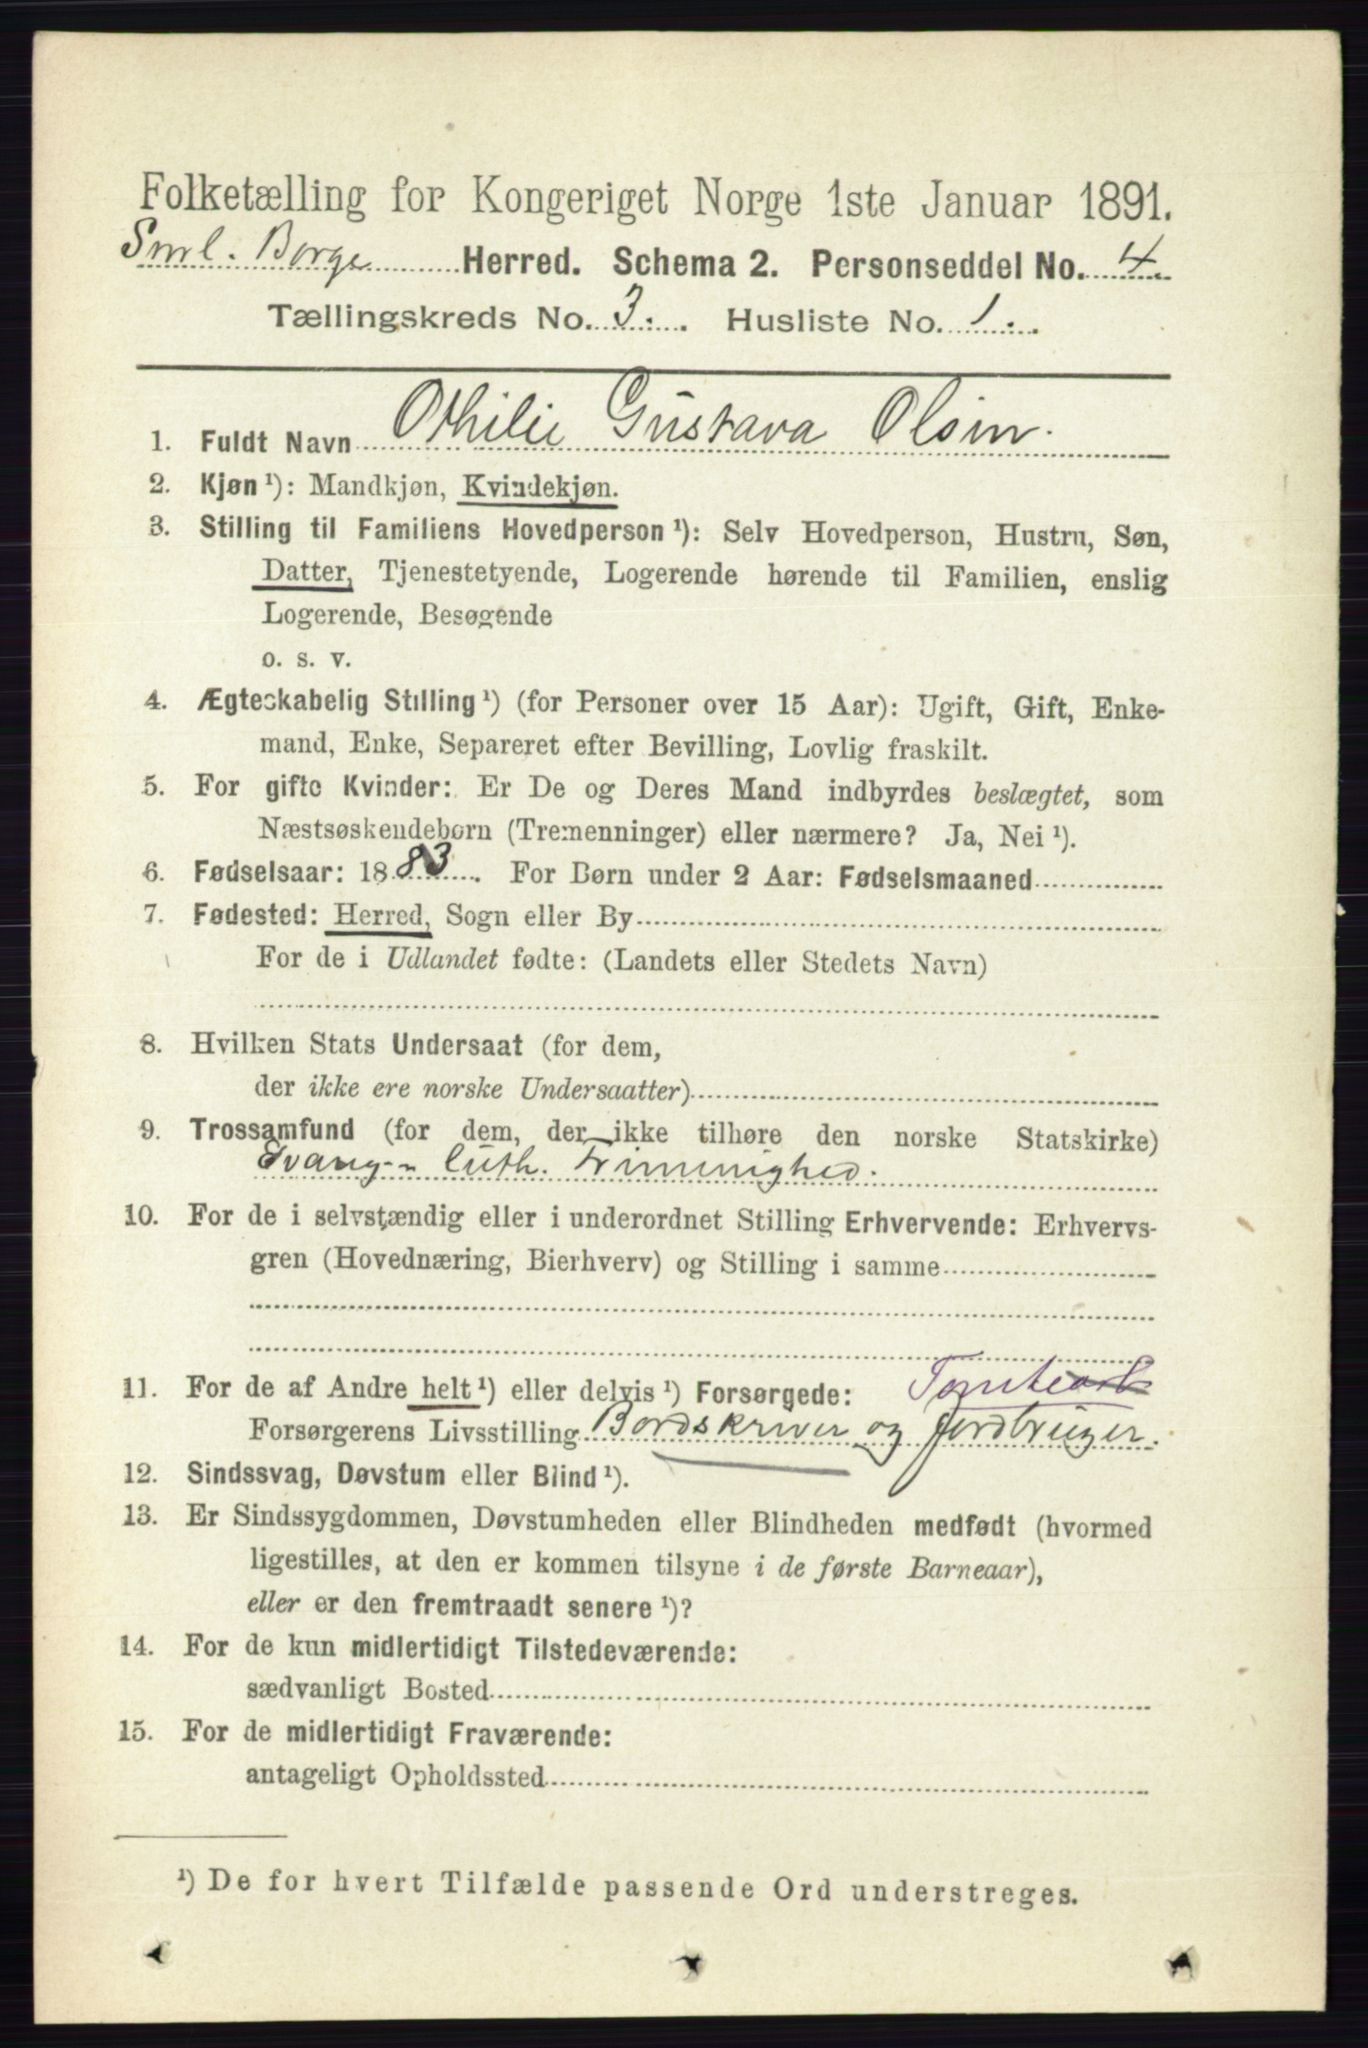 Folketælling for Kongeriget Norge 1ste Januar 1891.
Sml. Borge Herred. Schema 2. Personseddel No. 4.
Tællingskreds No. 3. Husliste No. 1.
1. Fuldt Navn Othilie Gustava Olsen.
2. Kjøn ¹): Mandkjøn, Kvindekjøn.
3. Stilling til Familiens Hovedperson ¹): Selv Hovedperson, Hustru, Søn,
Datter, Tjenestetyende, Logerende hørende til Familien, enslig
Logerende, Besøgende
o. s. v.
4. Ægteskabelig Stilling ¹) (for Personer over 15 Aar): Ugift, Gift, Enke-
mand, Enke, Separeret efter Bevilling, Lovlig fraskilt.
5. For gifte Kvinder: Er De og Deres Mand indbyrdes beslægtet, som
Næstsøskendebørn (Tremenninger) eller nærmere? Ja, Nei ¹).
6. Fødselsaar: 1883. For Børn under 2 Aar: Fødselsmaaned
7. Fødested: Herred, Sogn eller By
For de i Udlandet fødte: (Landets eller Stedets Navn)
8. Hvilken Stats Undersaat (for dem,
der ikke ere norske Undersaatter)
9. Trossamfund (for dem, der ikke tilhøre den norske Statskirke)
Evang.- luth. Frimenighed.
10. For de i selvstændig eller i underordnet Stilling Erhvervende: Erhvervs-
gren (Hovednæring, Bierhverv) og Stilling i samme
11. For de af Andre helt ¹) eller delvis ¹) Forsørgede:
Forsørgerens Livsstilling Bordskriver og Jordbruger.
12. Sindssvag, Døvstum eller Blind ¹).
13. Er Sindssygdommen, Døvstumheden eller Blindheden medfødt (hvormed
ligestilles, at den er kommen tilsyne i de første Barneaar),
eller er den fremtraadt senere ¹)?
14. For de kun midlertidigt Tilstedeværende:
sædvanligt Bosted
15. For de midlertidigt Fraværende:
antageligt Opholdssted
¹) De for hvert Tilfælde passende Ord understreges.